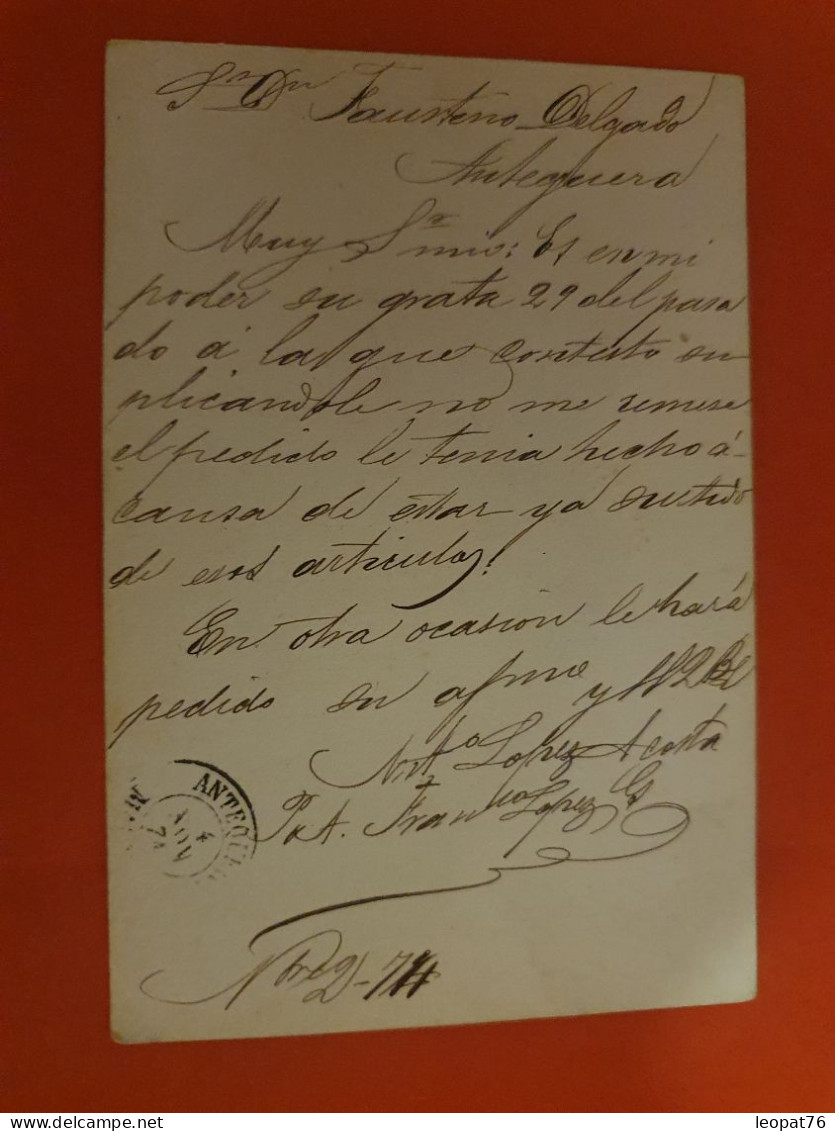 Sr Dn Faustino Delgado
Antequera
Muy Sr mio: Es en mi
poder su grata 29 del pasa
do á la que contesto su
plicandole no me remese
el pedido le tenia hecho á
causa de estar ya surtido
de esos articulos.
En otra ocasion le hará
pedido su afmo y
Anto Lopez Acosta
Franco Lopez
ANTEQUERA
4
NOV
74
Nbre 2-74
leopat76